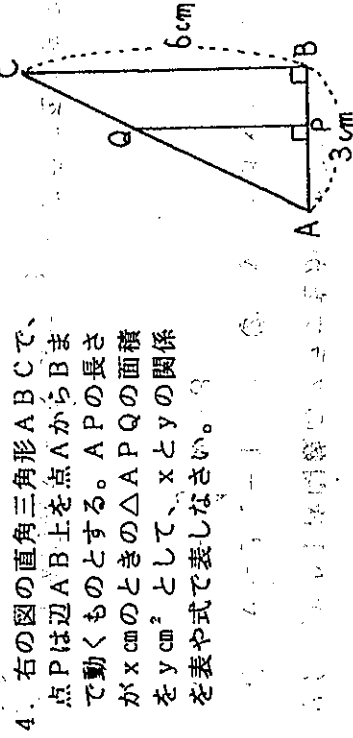 4. 右の図の直角三角形ABCで、
点Pは辺AB上を点AからBま
で動くものとする。APの長さ
がxcmのときの△APQの面積
をycm²として、xとyの関係
を表や式で表しなさい。
C
Q
6cm
A
P
B
3cm